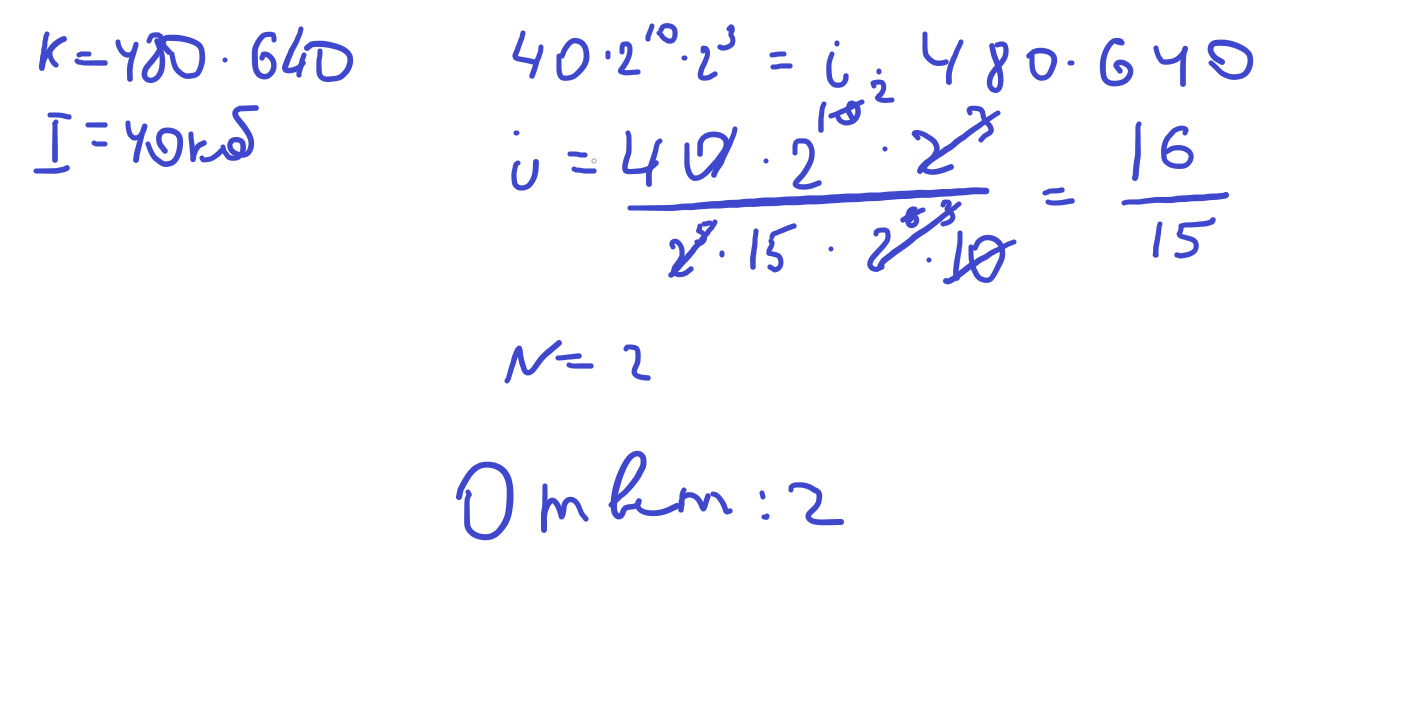 K = 480 · 640
I = 40 кб
40 · 2^10 · 2^3 = i · 480 · 640
i = (40 · 2^10 2 · 2^3) / (2^5 · 15 · 2^6 3 · 10) = 16/15
N = 2
Ответ: 2